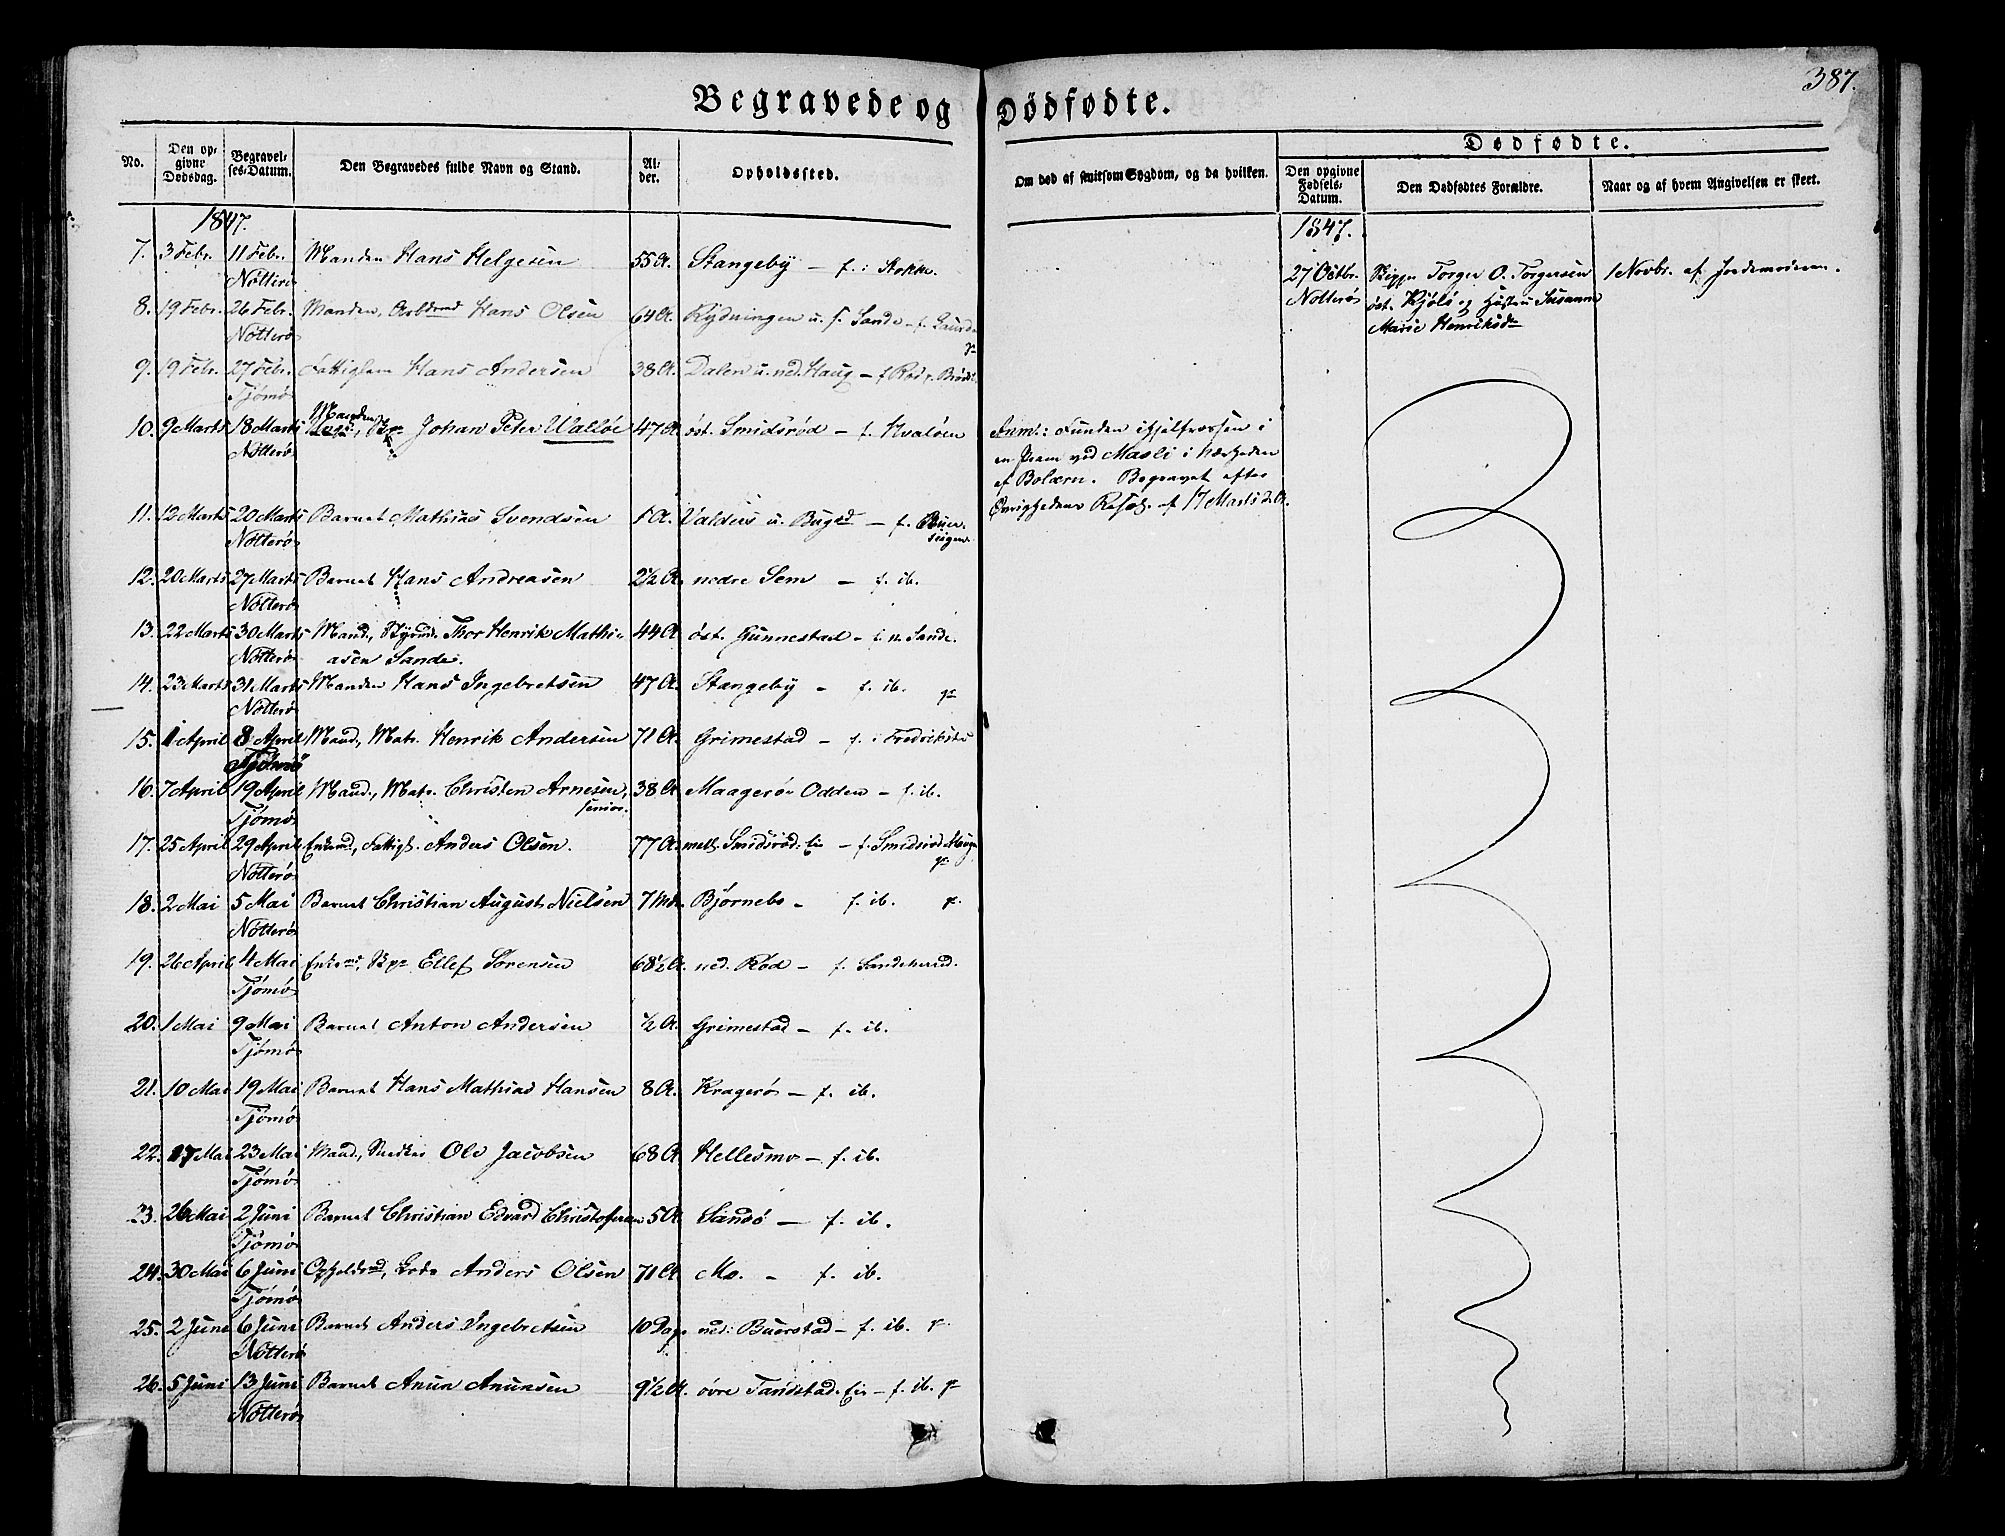 387.
Begravede og Dödfödte.
No.
Den op-
givne
Dødsdag.
Begravel-
ses-Datum.
Den Begravedes fulde Navn og Stand.
Al-
der.
Opholdssted.
Om død af smitsom Sygdom, og da hvilken.
Dødfødte.
Den opgivne
Fødsels-
Datum.
Den Dødfødtes Forældre.
Naar og af hvem Angivelsen er skeet.
1847.
7. 3 Febr. 11 Febr. Manden Hans Helgesen 55 A. Stangeby – f. i Stokke.
Nötterö
8. 19 Febr. 26 Febr. Manden, Hans Olsen 64 A. Rydningen u. Sande – f.
Nötterö
9. 19 Febr. 27 Febr. Fattiglem Hans Andersen 38 A. Dalen u. ned. Haug – f.
Tjömö
Manden
10. 9 Marts 18 Marts Johan Peter Vallöe 47 A. öst. Smidsröd – f. Hvalöen
Nötterö
11. 12 Marts 20 Marts Barnet Mathias Svendsen 1 A. Valders u. – f.
Nötterö
12. 20 Marts 27 Marts Barnet Hans Andreasen 2½ A. nedre Sem – f. ib.
Nötterö
13. 22 Marts 30 Marts Mand, Styrmd. Thor Henrik Mathi- 44 A. öst. Gunnestad – f. n. Sande.
Nötterö asen Sande.
14. 23 Marts 31 Marts Manden Hans Ingebretsen 47 A. Stangeby – f. ib.
Nötterö
15. 1 April 8 April Mand, Matr. Henrik Andersen 71 A. Grimestad – f. i Fredriksts
Tjömö
16. 7 April 19 April Mand, Matr. Christen Arnesen, 38 A. Maagerö Odden – f. ib.
Tjömö senior.
17. 25 April 29 April Enkemd, Fattigl. Anders Olsen. 77 A. mell. Smidsröd. Eie – f. Smidsröd Haugen
Nötterö
18. 2 Mai 5 Mai Barnet Christian August Nielsen 7 Mdr. Björnebo – f. ib.
Nötterö
19. 26 April 4 Mai Enkemd, Ellef Sörensen 68½ A. ned. Röd – f. Sandeherred.
Tjömö
20. 1 Mai 9 Mai Barnet Anton Andersen ½ A. Grimestad – f. ib.
Tjömö
21. 10 Mai 19 Mai Barnet Hans Mathias Hansen 8 A. Kragerö – f. ib.
Tjömö
22. 17 Mai 23 Mai Mand, Snedker Ole Jacobsen 68 A. Hellesmo – f. ib.
Tjömö
23. 26 Mai 2 Juni Barnet Christian Edvard Christofersen 5 A. Sandö – f. ib.
Tjömö
24. 30 Mai 6 Juni Opholdsmd, Lods Anders Olsen 71 A. Mo. – f. ib.
Tjömö
25. 2 Juni 6 Juni Barnet Anders Ingebretsen 10 Dage ned. Buerstad – f. ib.
Nötterö
26. 5 Juni 13 Juni Barnet Anun Anunsen 9½ A. övre Tandstad. Eie – f. ib.
Nötterö
Anm.: Funden ihjelfrossen i
en Pram ved Masli i Nærheden
af Bolærn. Begravet efter
Övrighedens Resol. af 17 Marts d. A.
1847.
27 Octbr. Torger O. Torgersen 1 Novbr. af Jordemoderen.
Nötterö öst. Kjölö og Hustru Susanne
Marie Henriksdr